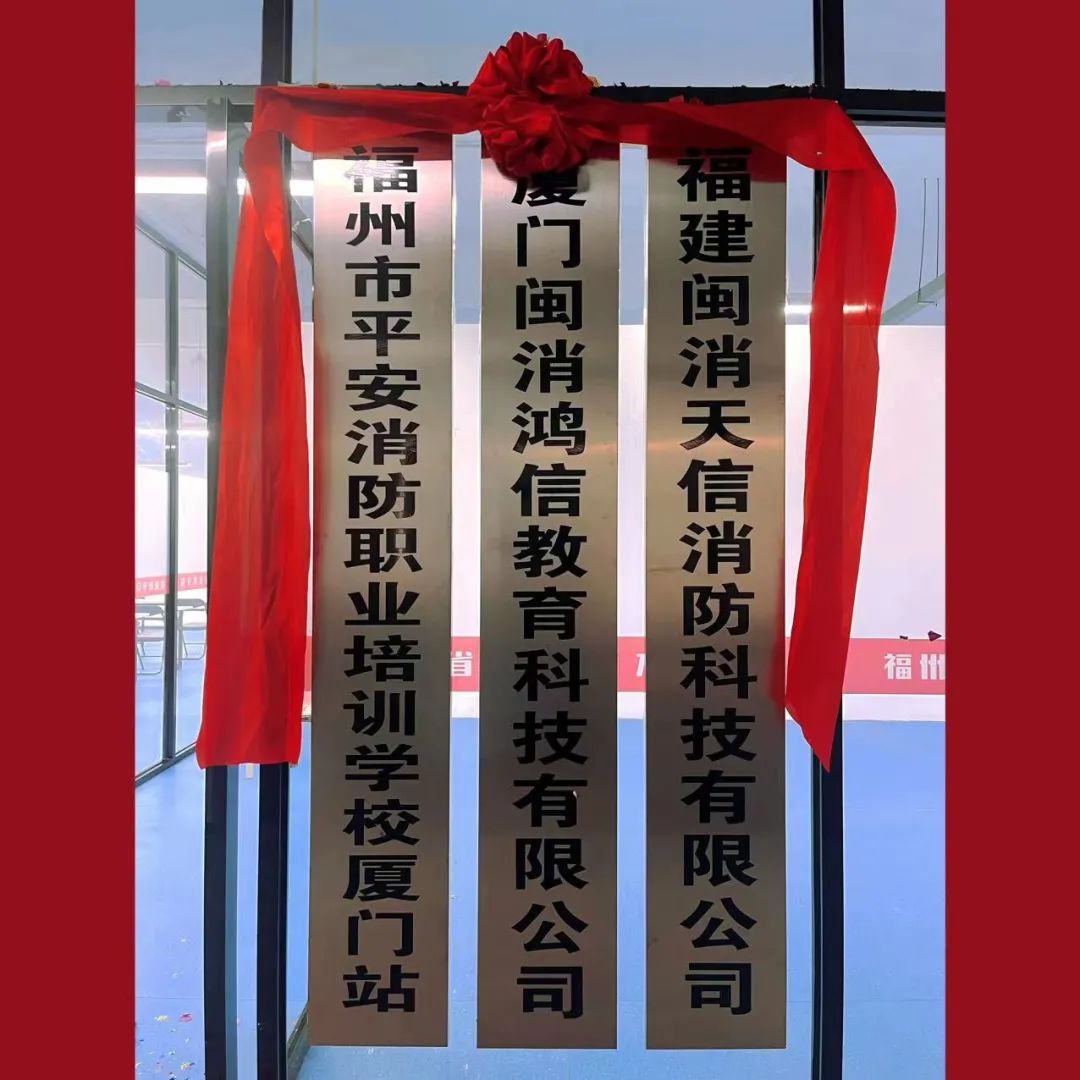 福州市平安消防职业培训学校厦门站
厦门闽消鸿信教育科技有限公司
福建闽消天信消防科技有限公司
福州